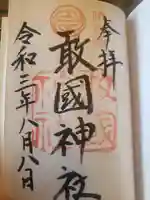 奉拝
敢國神社
令和三年八月八日